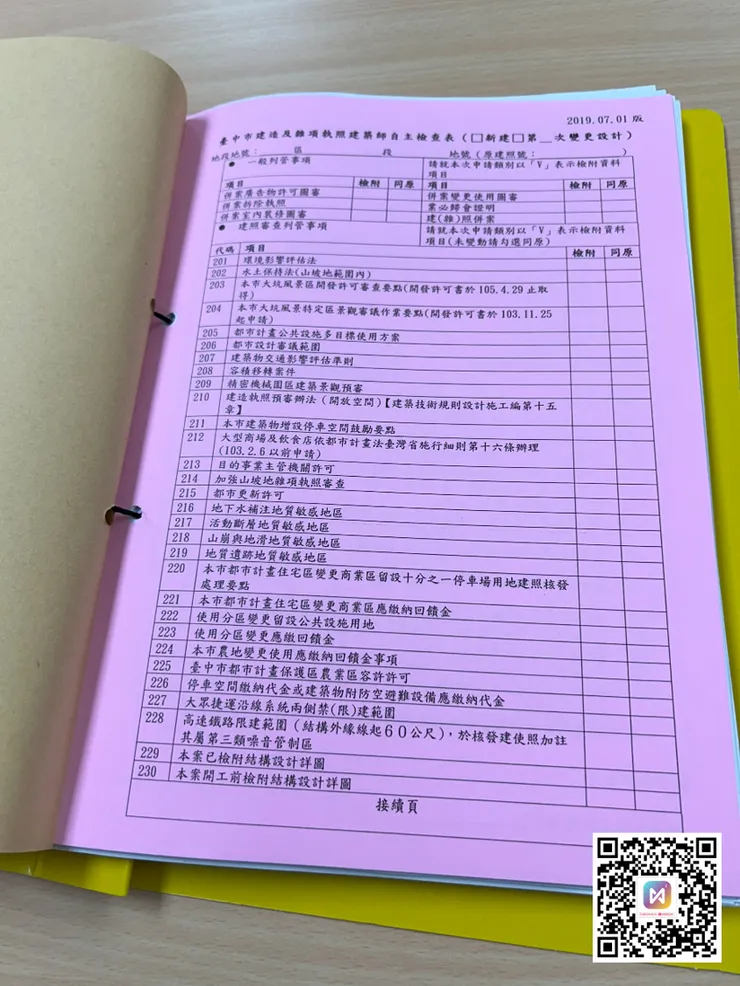 2019.07.01 版
臺中市建造及雜項執照建築師自主檢查表(□新建□第__次變更設計)
地段地號: 區 段 地號(原建照號: )
● 一般列管事項 請就本次申請類別以「V」表示檢附資料
項目 檢附 同原 項目 檢附 同原
併案廣告物許可圖審 併案變更使用圖審
併案拆除執照 業必歸會證明
併案室內裝修圖審 建(雜)照併案
● 建照審查列管事項 請就本次申請類別以「V」表示檢附資料
項目(未變動請勾選同原)
代碼 項目 檢附 同原
201 環境影響評估法
202 水土保持法(山坡地範圍內)
203 本市大坑風景區開發許可審查要點(開發許可書於 105.4.29 止取
得)
204 本市大坑風景特定區景觀審議作業要點(開發許可書於 103.11.25
起申請)
205 都市計畫公共設施多目標使用方案
206 都市設計審議範圍
207 建築物交通影響評估準則
208 容積移轉案件
209 精密機械園區建築景觀預審
210 建造執照預審辦法(開放空間)【建築技術規則設計施工編第十五
章】
211 本市建築物增設停車空間鼓勵要點
212 大型商場及飲食店依都市計畫法臺灣省施行細則第十六條辦理
(103.2.6 以前申請)
213 目的事業主管機關許可
214 加強山坡地雜項執照審查
215 都市更新許可
216 地下水補注地質敏感地區
217 活動斷層地質敏感地區
218 山崩與地滑地質敏感地區
219 地質遺跡地質敏感地區
220 本市都市計畫住宅區變更商業區留設十分之一停車場用地建照核發
處理要點
221 本市都市計畫住宅區變更商業區應繳納回饋金
222 使用分區變更留設公共設施用地
223 使用分區變更應繳回饋金
224 本市農地變更使用應繳納回饋金事項
225 臺中市都市計畫保護區農業區容許許可
226 停車空間繳納代金或建築物附防空避難設備應繳納代金
227 大眾捷運沿線系統兩側禁(限)建範圍
228 高速鐵路限建範圍(結構外緣線起60公尺),於核發建使照加註
其屬第三類噪音管制區
229 本案已檢附結構設計詳圖
230 本案開工前檢附結構設計詳圖
接續頁